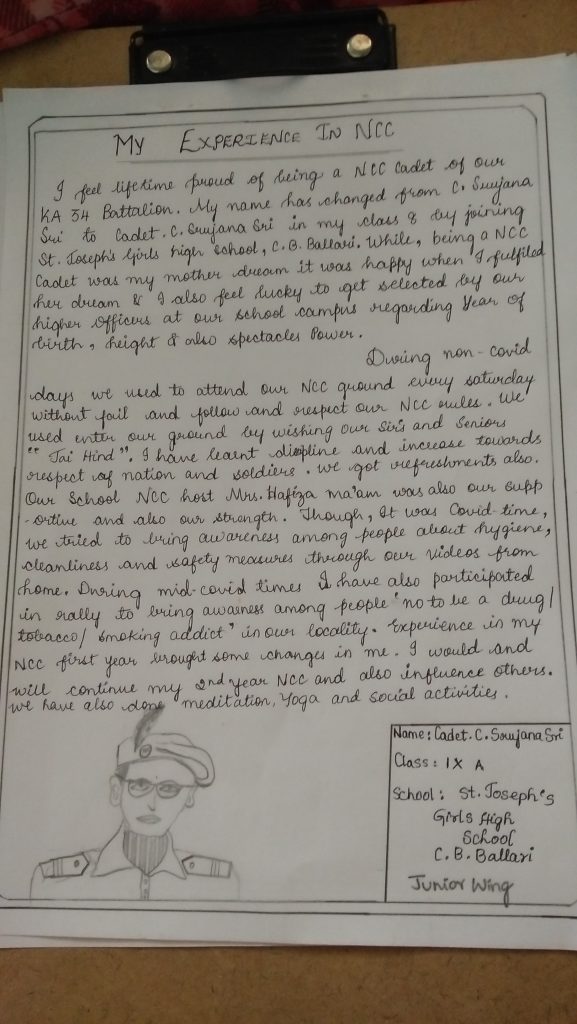 My Experience In NCC
I feel lifetime proud of being a NCC Cadet of our
KA 34 Battalion. My name has changed from C. Suujana
Sri to Cadet. C. Suujana Sri in my class 8 by joining
St. Joseph's Girls high school, C.B. Ballari. While, being a NCC
Cadet was my mother dream it was happy when I fulfiled
her dream & I also feel lucky to get selected by our
higher Officers at our school campus regarding Year of
birth, height & also spectacles Power.
During non-covid
days we used to attend our NCC ground every saturday
without fail and follow and respect our NCC rules. We
used enter our ground by wishing our Sirs and Seniors
"Jai Hind". I have learnt displine and increase towards
respect of nation and soldiers. we got refreshments also.
Our School NCC host Mrs. Hafiza ma'am was also our supp
-ortive and also our strength. Though, It was Covid-time,
we tried to bring awareness among people about hygiene,
cleanliness and safety measures through our videos from
home. During mid-covid times I have also participated
in rally to bring awarness among people 'no to be a drug/
tobacco/ smoking addict' in our locality. Experience in my
NCC first year brought some changes in me. I would and
will continue my 2nd year NCC and also influence others.
we have also done meditation, Yoga and social activities.
Name: Cadet. C. Soujana Sri
Class: IX A
School: St. Joseph's
Girls High
School
C. B. Ballari
Junior Wing